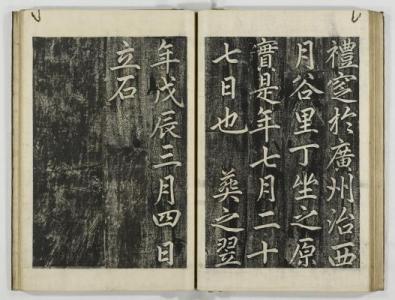 禮窆於廣州治西
月谷里丁坐之原
實是年七月二十
七日也　葵之翌
年戊辰三月四日
立石